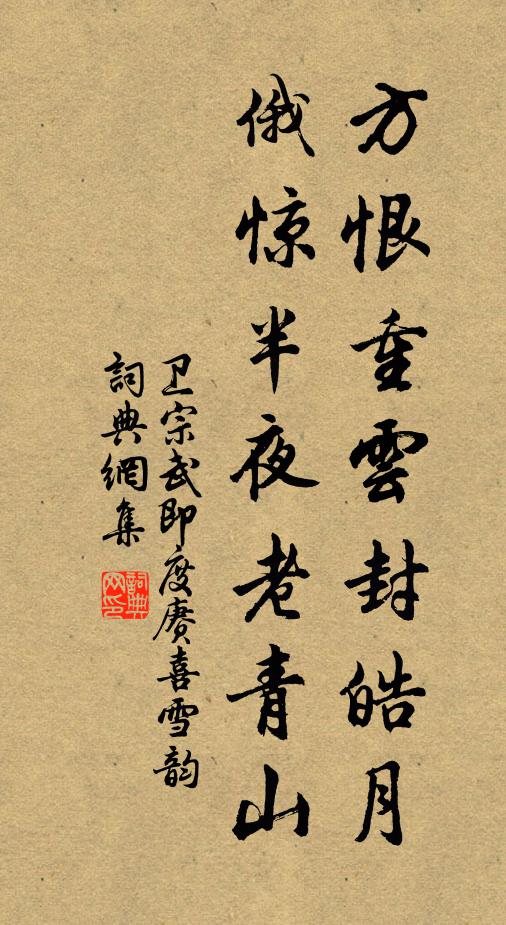 方恨重雲封皓月
俄惊半夜老青山
卫宗武即度赓喜雪韵
詞典網集
詞典网印